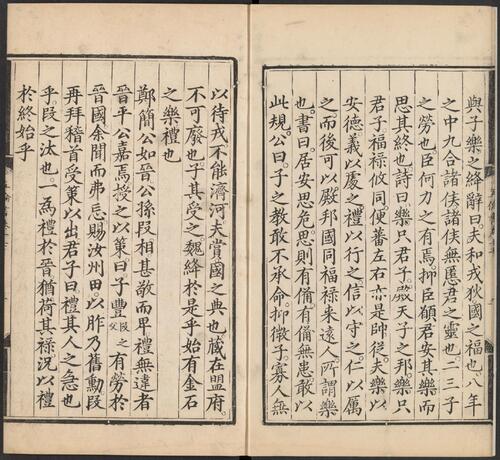 與子樂之絳辭曰夫和戎狄國之福也八年
之中九合諸侯諸侯無慝君之靈也二三子
之勞也臣何力之有焉抑臣願君安其樂而
思其終也詩曰樂只君子殿天子之邦樂只
君子福祿攸同便蕃左右亦是帥從夫樂以
安德義以處之禮以行之信以守之仁以厲
之而後可以殿邦國同福祿来遠人所謂樂
也書曰居安思危思則有備有備無患敢以
此規公曰子之教敢不承命抑微子寡人無
以待戎不能濟河夫賞國之典也藏在盟府
不可廢也子其受之魏絳於是乎始有金石
之樂禮也
鄭簡公如晉公孫段相甚敬而卑禮無違者
晉平公嘉焉授之以策曰子豐段之父有勞於
晉國余聞而弗忘賜汝州田以胙乃舊勳段
再拜稽首受策以出君子曰禮其人之急也
乎段之汰也一為禮於晉猶荷其祿況以禮
於終始乎